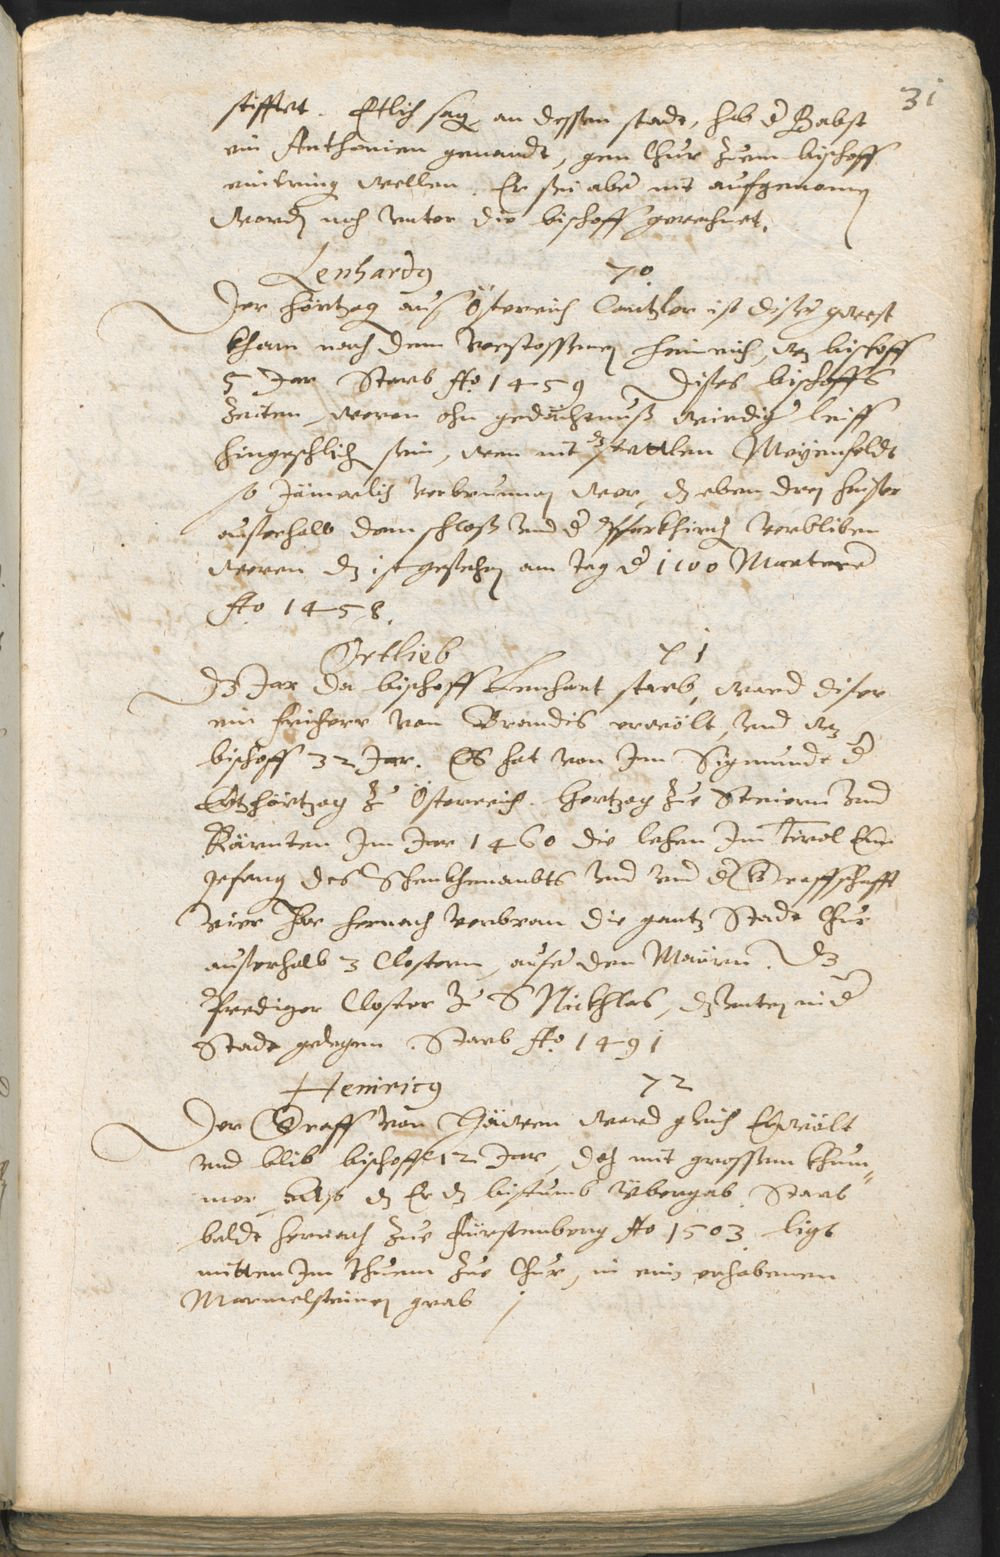 31
stifftet. Etlich sag, an dessen stadt, hab d Babst
ein Anthonien genandt, gen Chur zum bischoff
eintring wellen. Er sei aber nit aufgenomē
word noch unter die bischoff gerechnet.
Lenhardg 70
Der Hörtzog aus Östereich Cantzler ist diser gwest
kham nach dem verstossenen Heinrich, wz bischoff
5 Jar Starb Ao 1459 Dises bischoffs
zeiten, weren ohn gedächtnuß wirdig leiff
hingeschlich sein, wen nit dz Meyenfeldt
so Jämerlich verbrunnen wer, dz eben drey heüser
ausserhalb dem schloß und d Pfarkhirch verbliben
weren dz ist geschehen am tag d 1100 Martere
Ao 1458.
Ortlieb 71
Dz Jar da bischoff Lenhart starb, ward diser
ein freiherr von Brandis erwölt, und wz
bischoff 32 Jar. Es hat von Im Sigmundt d
Ertzhörtzog zu Österreich. Hertzog zue Steirn und
Kärnten Im Jar 1460 die lehen Im Tirol Em
pfang des Schenkhenambts und und d Graffschafft
vier Jar hernach verbran die gantz Stadt Chur
ausserhalb 3 Clostern, ausser den Maürn. Dz
Prediger Closter zu S Nickhlas, dz unten in d
Stadt gelegen. Starb Ao 1491
Heinricg 72
Der Graff von Häwen ward gleich Erwölt
und blib bischoff 12 Jar, doch mit grossem khum„
mer, dz Er dz bistumb übergab. Starb
baldt hernach zue Fürstenberg Ao 1503. ligt
mitten Im Thuem zue Chur, in einē erhabenen
Marmelsteinen grab